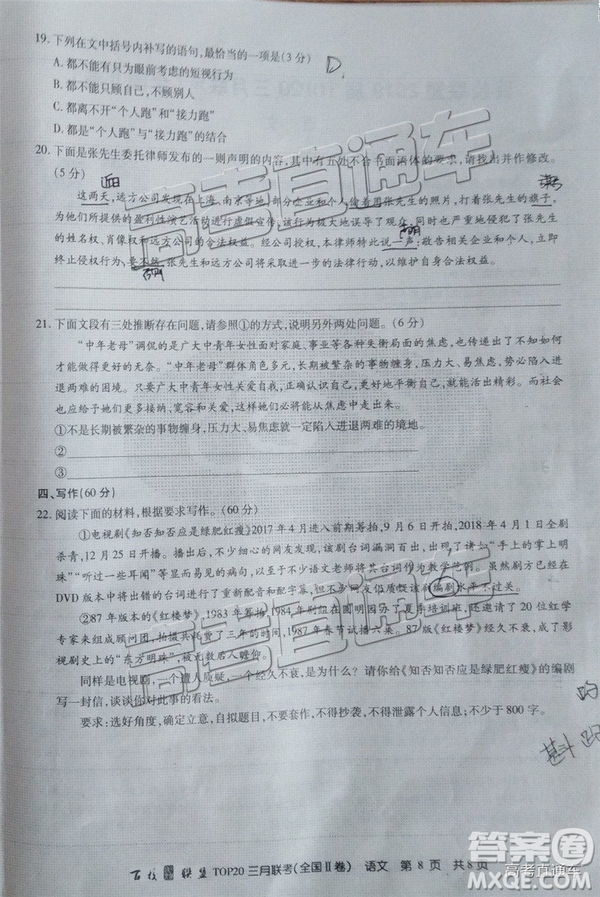 19. 下列在文中括号内补写的语句,最恰当的一项是(3分) D
A. 都不能有只为眼前考虑的短视行为
B. 都不能只顾自己,不顾别人
C. 都离不开“个人跑”和“接力跑”
D. 都是“个人跑”与“接力跑”的结合
20. 下面是张先生委托律师发布的一则声明的内容,其中有三处不合书面语体的要求,请找出并作修改。
(5分)
这两天,远方公司发现在上海、南京等地,部分企业和个人偷着用张先生的照片,打着张先生的旗子,
为他们所提供的盈利性演艺活动进行虚假宣传,该行为极大地误导了观众,同时也严重侵害了张先生
的姓名权、肖像权和远方公司的合法权益。经公司授权,本律师特此说一声:敬告相关企业和个人,立即
终止侵权行为,要不然,张先生和远方公司将采取进一步的法律行动,以维护自身合法权益。
21. 下面文段有三处推断存在问题,请参照①的方式,说明另外两处问题。(6分)
“中年老母”调侃的是广大中青年女性面对家庭、事业等方方面面的压力时的焦虑感。女性要做好自己,
才能做得更好。“中年老母”群体角色多元,长期被繁杂的事物缠身,压力大、易焦虑,这样就会陷入进
退两难的困境。只要广大中青年女性关爱自我,正确认识自己,更好地平衡自己,就能打破困境。社会
应给与她们更多接纳、宽容和关爱,这样她们必将从焦虑中走出来。
①不是长期被繁杂的事物缠身,压力大、易焦虑就一定陷入进退两难的境地。
②
③
四、写作(60分)
22. 阅读下面的材料,根据要求写作。(60分)
①电视剧《知否知否应是绿肥红瘦》2017年4月进入前期筹拍,9月6日开拍,2018年4月1日全剧
杀青,12月25日开播。播出后,不少细心的网友发现,该剧台词漏洞百出,如“手上的掌上明
珠”“听过一些耳闻”等成了最有名的病句,以至于不少语文老师将其台词作为教学范例。虽然剧方已经在
DVD版本中将出错的台词进行了重新配音和配字幕,但不少网友依旧质疑该剧编剧水平不过关。
②87年版本的《红楼梦》,1983年筹划,1984年剧组在圆明园开办了夏季培训班,还邀请了20位红学
专家来组成顾问团,拍摄共三年的时间,1987年春节试播六集。87版《红楼梦》引发轰动,成为了影
视剧史上的“东方明珠”,被誉为不可超越的经典。
同样是电视剧,一个遭人质疑,一个经久不衰,是为什么?请你给《知否知否应是绿肥红瘦》的编剧
写一封信,谈谈你对此事的看法。
要求:选好角度,确定立意,自拟题目,不要套作,不得抄袭,不得泄露个人信息;不少于800字。
百校联盟 TOP20 三月联考(全国Ⅱ卷) 语文 第8页 共8页
高考直通车